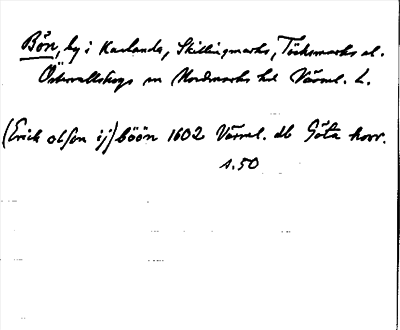 Bön, by i Karlanda, Skillingmarks, Töcksmarks el.
Östervallskogs sn Nordmarks hd Värml. L.
(Erick olsen ij) böön 1602 Värml. db Göta horr.
s. 50